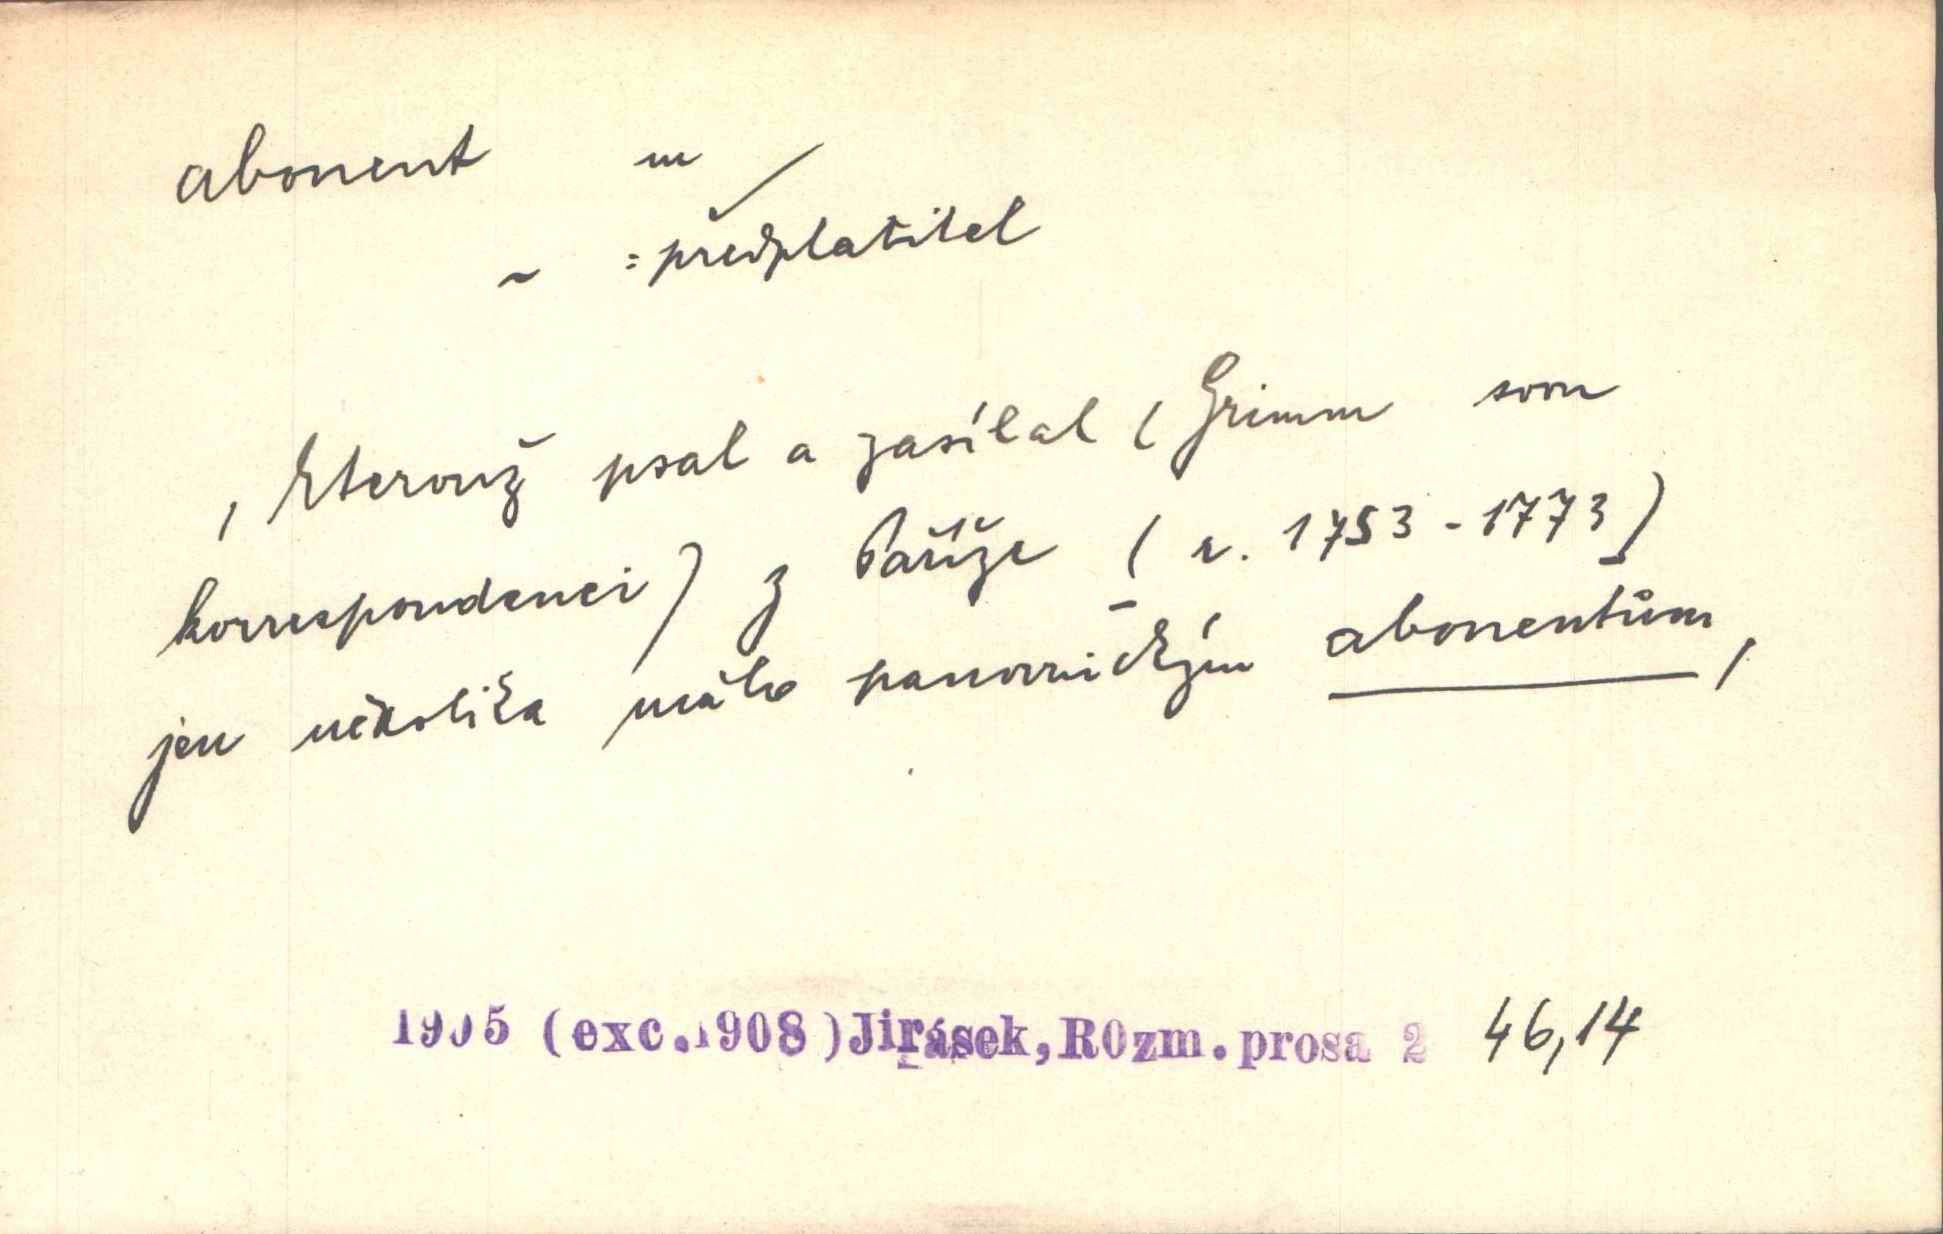 abonent m
~ = předplatitel
, kterouž psal a zasílal (Grimm svou
korrespondenci) z Paříže (r. 1753-1773)
jen několika málo panovnickým abonentům,
1905 (exc.1908)Jirásek,ROzm.prosa 2 46,14